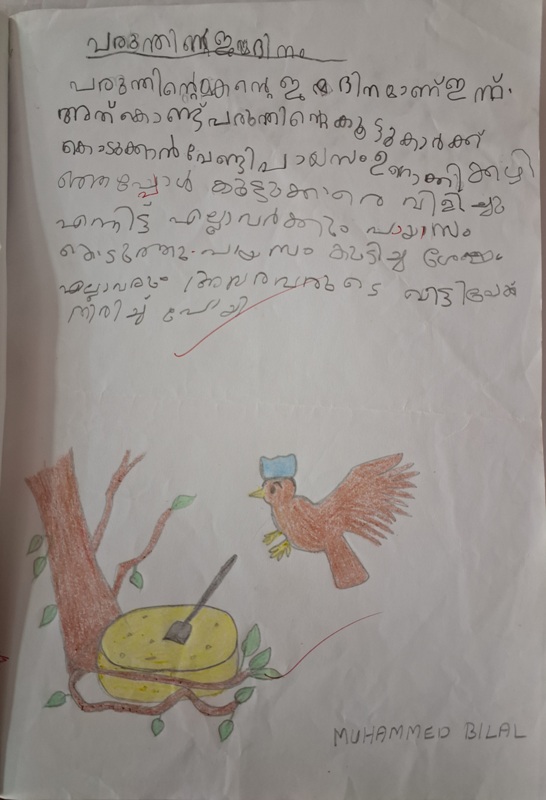 പരുന്തിൻ ജന്മദിനം
പരുന്തിന്റെമകന്റെ ജന്മദിനമാണ് ഇന്ന്.
അത്കൊണ്ട് പരുന്തിന്റെ കൂട്ടുകാർക്ക്
കൊടുക്കാൻ വേണ്ടി പായസം ഉണ്ടാക്കി കഴി
ഞ്ഞപ്പോൾ കൂട്ടുക്കാരെ വിളിച്ചു
എന്നിട്ട് എല്ലാവർക്കും പായസം
കൊടുത്തു. പായസം കുടിച്ച ശേഷം
എല്ലാവരും അവരവരുടെ വീട്ടിലേക്ക്
തിരിച്ച് പോയി
MUHAMMED BILAL